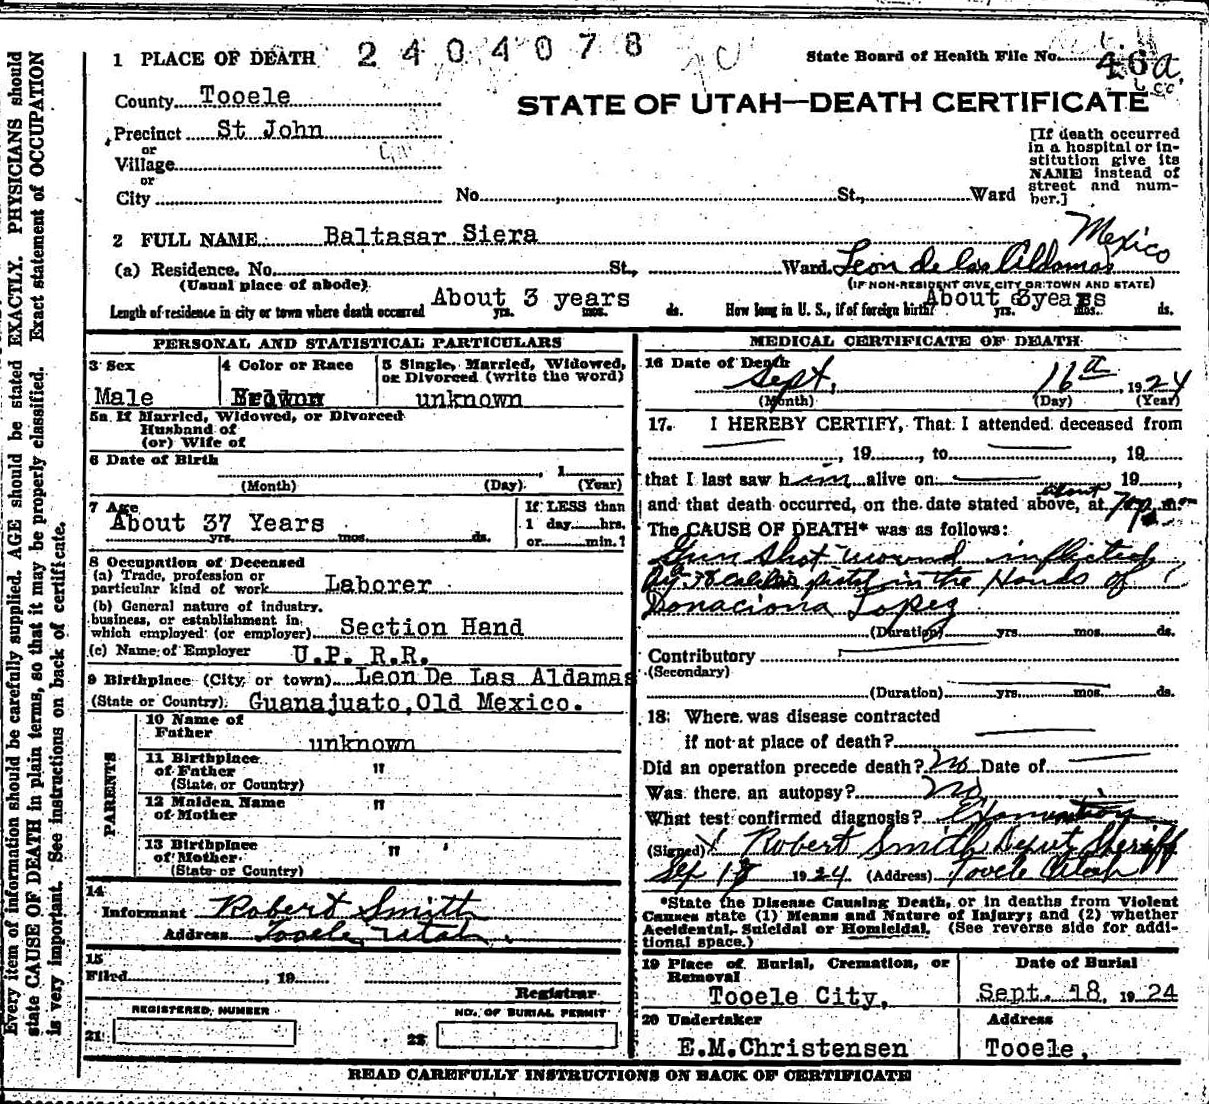 1 PLACE OF DEATH 2404078
State Board of Health File No. 46a
County Tooele
STATE OF UTAH—DEATH CERTIFICATE
Precinct St John
or
Village
or
City No. St., Ward
[If death occurred
in a hospital or in-
stitution give its
NAME instead of
street and num-
ber.]
2 FULL NAME Baltasar Siera
Mexico
(a) Residence. No. St., Ward. Leon de las Aldamas
(Usual place of abode)
(IF NON-RESIDENT GIVE CITY OR TOWN AND STATE)
Length of residence in city or town where death occurred About 3 years yrs. mos. ds.
How long in U. S., if of foreign birth? About years yrs. mos. ds.
PERSONAL AND STATISTICAL PARTICULARS
3 Sex
Male
4 Color or Race
Brown
5 Single, Married, Widowed,
or Divorced (write the word)
unknown
5a If Married, Widowed, or Divorced
Husband of
(or) Wife of
6 Date of Birth , 1
(Month) (Day) (Year)
7 Age
About 37 Years
yrs. mos. ds.
If LESS than
1 day hrs.
or min.?
8 Occupation of Deceased
(a) Trade, profession or
particular kind of work Laborer
(b) General nature of industry.
business, or establishment in
which employed (or employer) Section Hand
(c) Name of Employer U.P. R.R.
9 Birthplace (City or town) Leon De Las Aldamas
(State or Country) Guanajuato,Old Mexico.
PARENTS
10 Name of
Father unknown
11 Birthplace
of Father "
(State or Country)
12 Maiden Name "
of Mother
13 Birthplace
of Mother "
(State or Country)
14
Informant Robert Smith
Address Tooele, Utah.
15
Filed , 19
Registrar
REGISTERED NUMBER
21
NO. OF BURIAL PERMIT
22
MEDICAL CERTIFICATE OF DEATH
16 Date of Death
Sept. 16th 1924
(Month) (Day) (Year)
17. I HEREBY CERTIFY, That I attended deceased from
, 19 , to , 19
that I last saw him alive on 19 ,
about
and that death occurred, on the date stated above, at m.
The CAUSE OF DEATH* was as follows:
Gun shot wound inflicted
by caliber pistol in the Hands of
Donaciona Lopez
(Duration) yrs. mos. ds.
Contributory
(Secondary)
(Duration) yrs. mos. ds.
18: Where was disease contracted
if not at place of death?
Did an operation precede death? No Date of
Was there an autopsy? No
What test confirmed diagnosis? Examination
(Signed) X Robert Smith Deput Sheriff
Sep 18 1924 (Address) Tooele Utah
*State the Disease Causing Death, or in deaths from Violent
Causes state (1) Means and Nature of Injury; and (2) whether
Accidental, Suicidal or Homicidal. (See reverse side for addi-
tional space.)
19 Place of Burial, Cremation, or
Removal
Tooele City,
Date of Burial
Sept. 18, 1924
20 Undertaker
E.M.Christensen
Address
Tooele,
READ CAREFULLY INSTRUCTIONS ON BACK OF CERTIFICATE
Every item of information should be carefully supplied. AGE should be stated EXACTLY. PHYSICIANS should
state CAUSE OF DEATH in plain terms, so that it may be properly classified. Exact statement of OCCUPATION
is very important. See instructions on back of certificate.